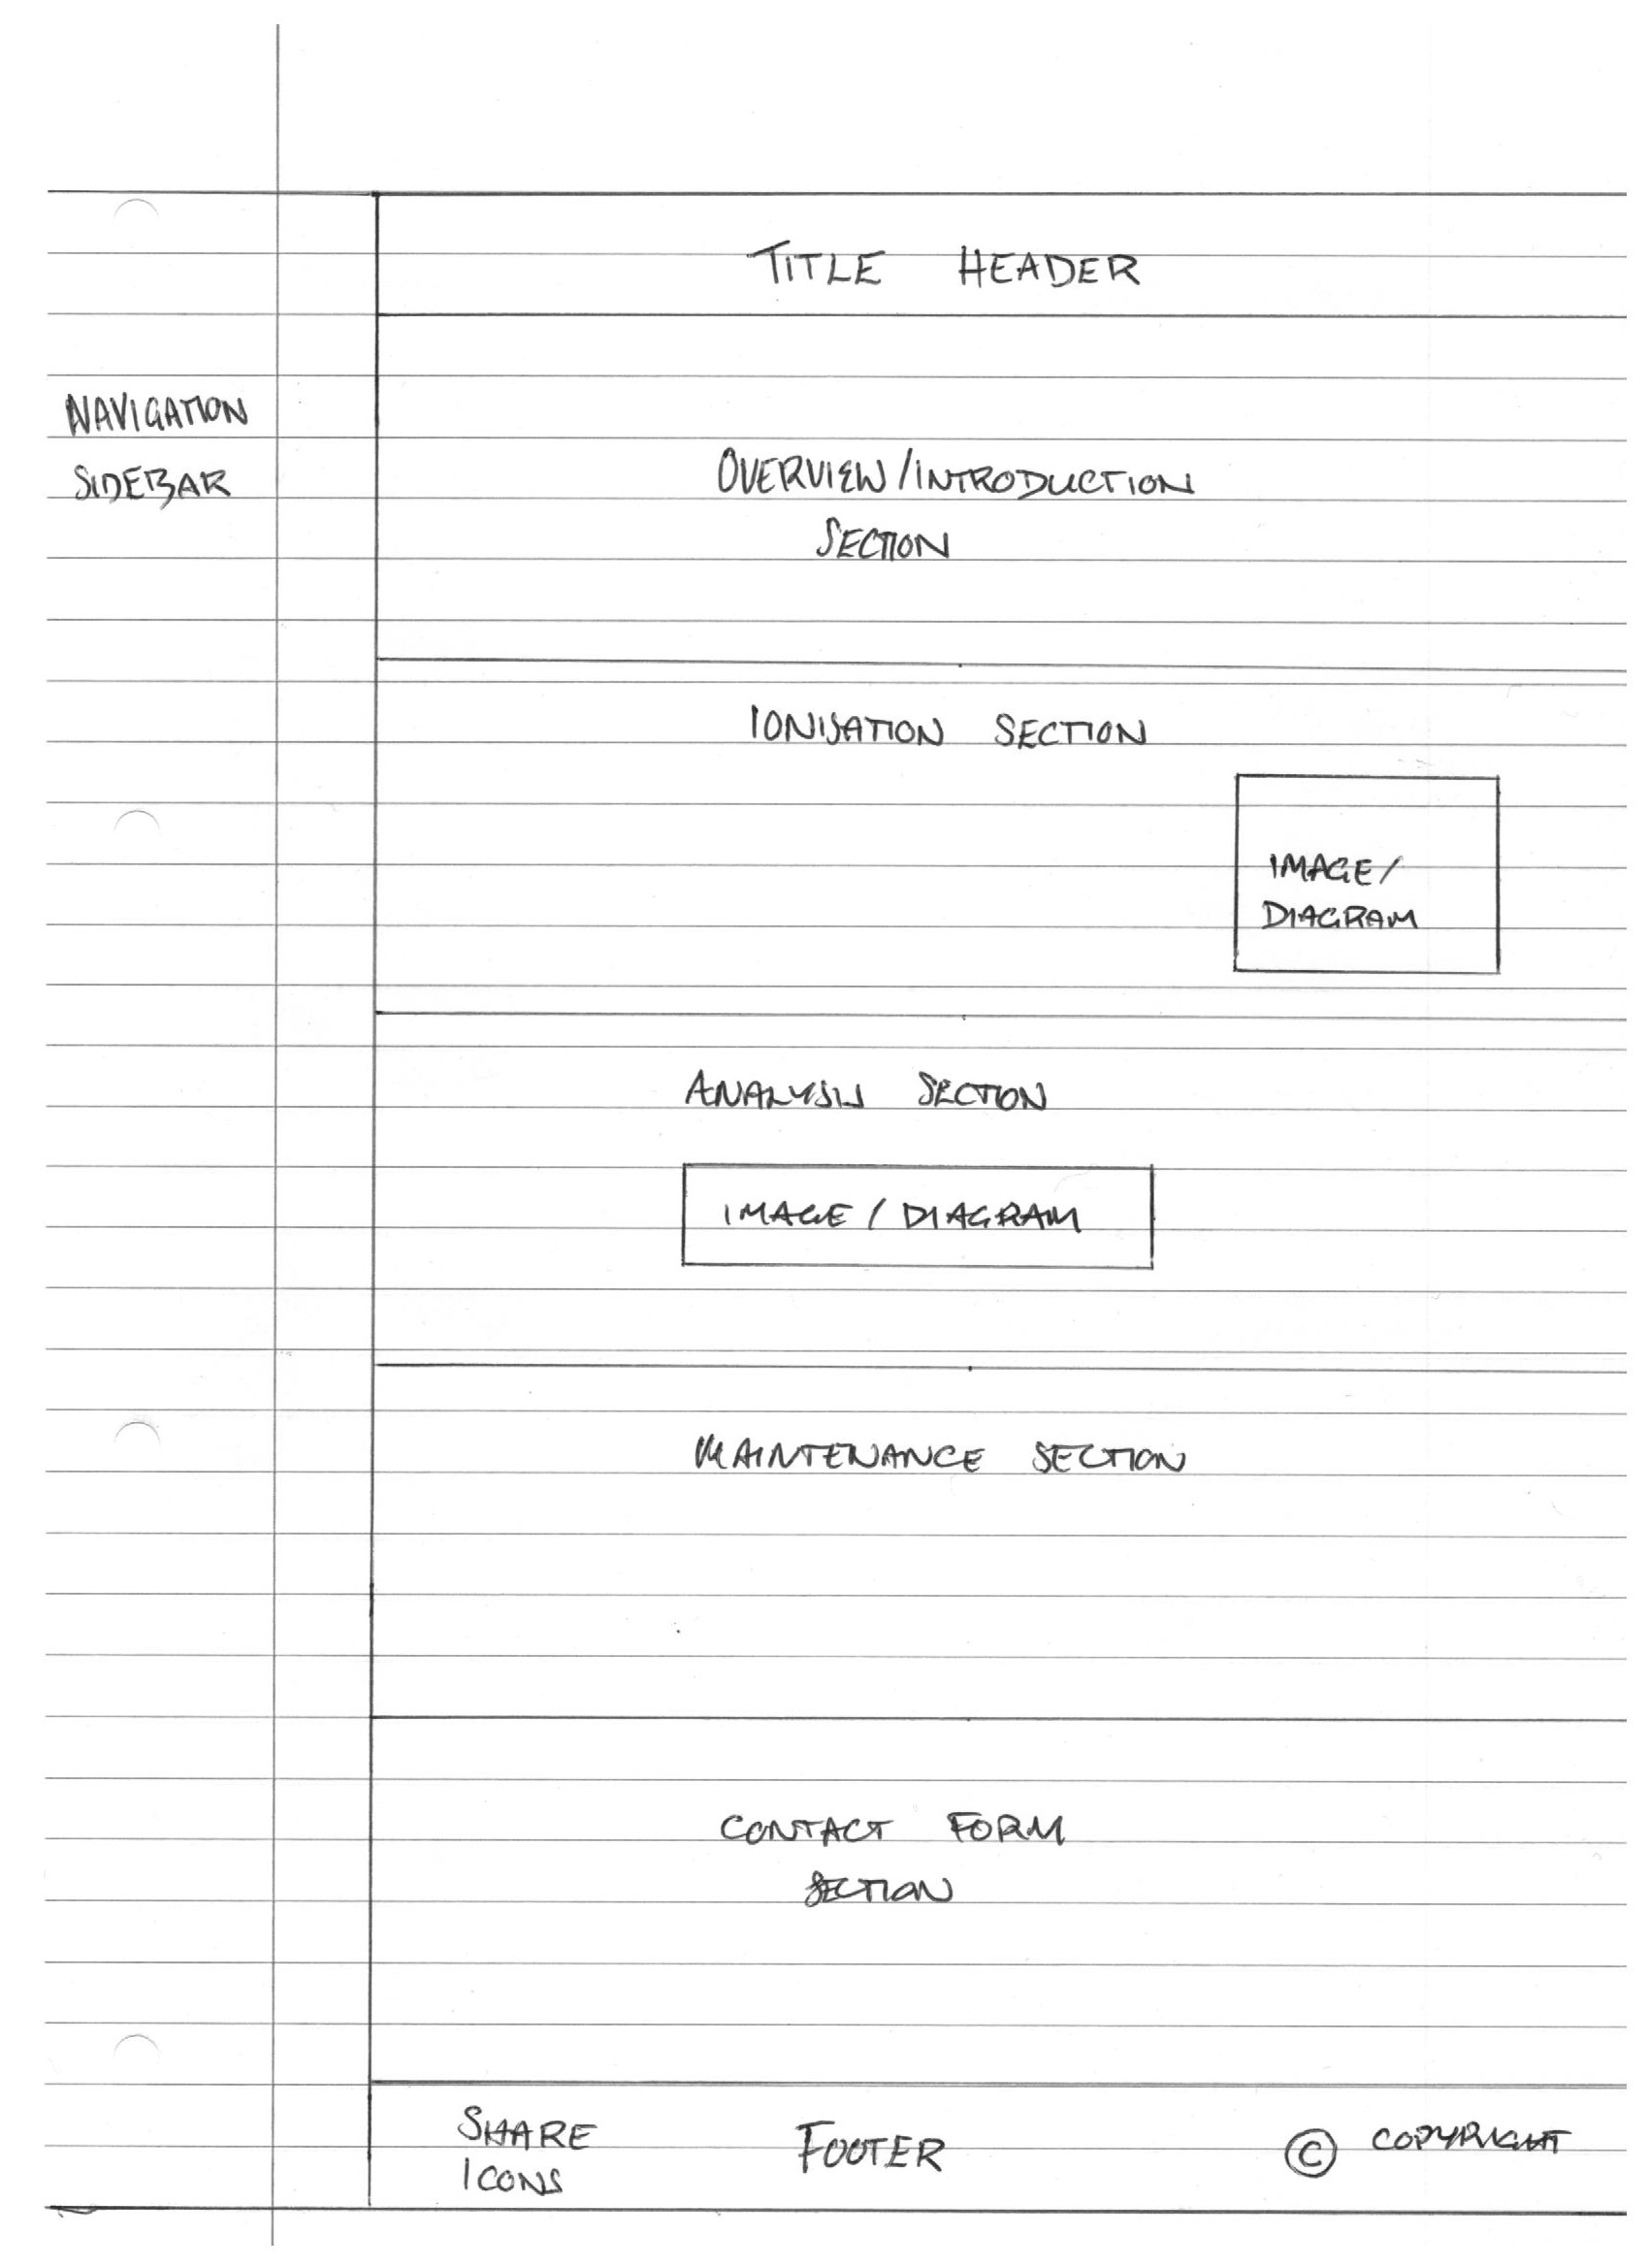 TITLE HEADER
NAVIGATION
SIDEBAR
OVERVIEW/INTRODUCTION
SECTION
IONISATION SECTION
IMAGE/
DIAGRAM
ANALYSIS SECTION
IMAGE / DIAGRAM
MAINTENANCE SECTION
CONTACT FORM
SECTION
SHARE
ICONS
FOOTER
© COPYRIGHT